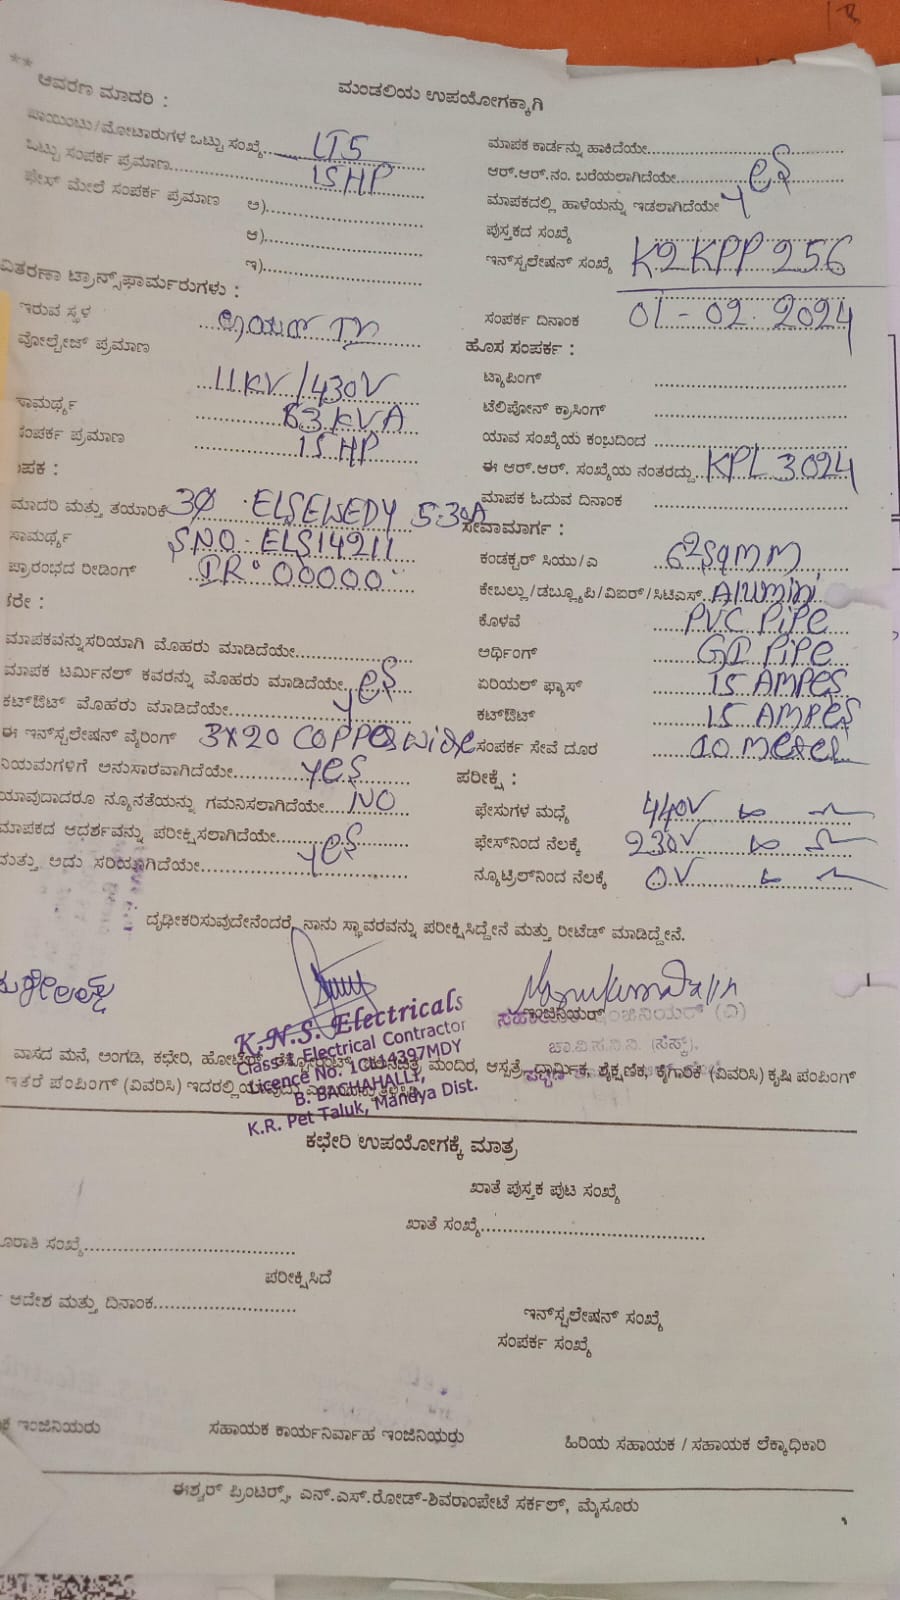 **
ಆವರಣ ಮಾದರಿ :
ಮಂಡಲಿಯ ಉಪಯೋಗಕ್ಕಾಗಿ
ಪಾಯಿಂಟು/ಮೋಟಾರುಗಳ ಒಟ್ಟು ಸಂಖ್ಯೆ LT5
ಒಟ್ಟು ಸಂಪರ್ಕ ಪ್ರಮಾಣ 15HP
ಫೇಸ್ ಮೇಲೆ ಸಂಪರ್ಕ ಪ್ರಮಾಣ ಅ)
ಆ)
ಇ)
ವಿತರಣಾ ಟ್ರಾನ್ಸ್‌ಫಾರ್ಮರುಗಳು :
ಇರುವ ಸ್ಥಳ
ವೋಲ್ಟೇಜ್ ಪ್ರಮಾಣ 11KV/430V
ಸಾಮರ್ಥ್ಯ 63 KVA
ಸಂಪರ್ಕ ಪ್ರಮಾಣ 15HP
ಪಕ :
ಮಾದರಿ ಮತ್ತು ತಯಾರಿಕೆ 3Ø ELSEWEDY 5-30A
ಸಾಮರ್ಥ್ಯ SNO- ELS14211
ಪ್ರಾರಂಭದ ರೀಡಿಂಗ್ IR: 00000
ಕರೇ :
ಮಾಪಕವನ್ನು ಸರಿಯಾಗಿ ಮೊಹರು ಮಾಡಿದೆಯೇ
ಮಾಪಕ ಟರ್ಮಿನಲ್ ಕವರನ್ನು ಮೊಹರು ಮಾಡಿದೆಯೇ yes
ಕಟ್ಔಟ್ ಮೊಹರು ಮಾಡಿದೆಯೇ
ಈ ಇನ್‌ಸ್ಟಲೇಷನ್ ವೈರಿಂಗ್ 3X20 COPPER wire
ನಿಯಮಗಳಿಗೆ ಅನುಸಾರವಾಗಿದೆಯೇ yes
ಯಾವುದಾದರೂ ನ್ಯೂನತೆಯನ್ನು ಗಮನಿಸಲಾಗಿದೆಯೇ NO
ಮಾಪಕದ ಆಧರ್ಶವನ್ನು ಪರೀಕ್ಷಿಸಲಾಗಿದೆಯೇ yes
ಮತ್ತು ಅದು ಸರಿಯಾಗಿದೆಯೇ
ಮಾಪಕ ಕಾರ್ಡನ್ನು ಹಾಕಿದೆಯೇ
ಆರ್.ಆರ್.ನಂ. ಬರೆಯಲಾಗಿದೆಯೇ yes
ಮಾಪಕದಲ್ಲಿ ಹಾಳೆಯನ್ನು ಇಡಲಾಗಿದೆಯೇ
ಪುಸ್ತಕದ ಸಂಖ್ಯೆ
ಇನ್‌ಸ್ಟಲೇಷನ್ ಸಂಖ್ಯೆ K2KPP 256
ಸಂಪರ್ಕ ದಿನಾಂಕ 01-02-2024
ಹೊಸ ಸಂಪರ್ಕ :
ಟ್ಯಾಪಿಂಗ್
ಟೆಲಿಫೋನ್ ಕ್ರಾಸಿಂಗ್
ಯಾವ ಸಂಖ್ಯೆಯ ಕಂಬದಿಂದ
ಈ ಆರ್.ಆರ್. ಸಂಖ್ಯೆಯ ನಂತರದ್ದು KPL 3024
ಮಾಪಕ ಓದುವ ದಿನಾಂಕ
ಸೇವಾಮಾರ್ಗ :
ಕಂಡಕ್ಟರ್ ಸಿಯು/ಎ 6²sqmm
ಕೇಬಲ್ಲು/ಡಬ್ಲ್ಯೂಪಿ/ವಿಐಆರ್/ಸಿಟಿಎಸ್ Alumini
ಕೊಳವೆ PVC PiPe
ಅರ್ಥಿಂಗ್ GI PiPe
ಏರಿಯಲ್ ಫ್ಯೂಸ್ 15 AMPeS
ಕಟ್ಔಟ್ 15 AMPeS
ಸಂಪರ್ಕ ಸೇವೆ ದೂರ 10 meter
ಪರೀಕ್ಷೆ :
ಫೇಸುಗಳ ಮಧ್ಯೆ 440V
ಫೇಸ್‌ನಿಂದ ನೆಲಕ್ಕೆ 230V
ನ್ಯೂಟ್ರಲ್‌ನಿಂದ ನೆಲಕ್ಕೆ 0V
ದೃಢೀಕರಿಸುವುದೇನೆಂದರೆ, ನಾನು ಸ್ಥಾವರವನ್ನು ಪರೀಕ್ಷಿಸಿದ್ದೇನೆ ಮತ್ತು ರೀಟೆಡ್ ಮಾಡಿದ್ದೇನೆ.
ಇಂಜಿನಿಯರ್
K.N.S. Electricals
Class-1, Electrical Contractor
B. BACHAHALLI,
K.R. Pet Taluk, Mandya Dist.
ವಾಸದ ಮನೆ, ಅಂಗಡಿ, ಕಛೇರಿ, ಹೋಟೆಲ್ ಮಂದಿರ, ಆಸ್ಪತ್ರೆ, ಧಾರ್ಮಿಕ, ಶೈಕ್ಷಣಿಕ, ಕೈಗಾರಿಕೆ (ವಿವರಿಸಿ) ಕೃಷಿ ಪಂಪಿಂಗ್
ಇತರೆ ಪಂಪಿಂಗ್ (ವಿವರಿಸಿ)
ಕಛೇರಿ ಉಪಯೋಗಕ್ಕೆ ಮಾತ್ರ
ಖಾತೆ ಪುಸ್ತಕ ಪುಟ ಸಂಖ್ಯೆ
ಖಾತೆ ಸಂಖ್ಯೆ
ಸಂಖ್ಯೆ
ಪರೀಕ್ಷಿಸಿದೆ
ಆದೇಶ ಮತ್ತು ದಿನಾಂಕ
ಇನ್‌ಸ್ಟಲೇಷನ್ ಸಂಖ್ಯೆ
ಸಂಪರ್ಕ ಸಂಖ್ಯೆ
ಇಂಜಿನಿಯರು
ಸಹಾಯಕ ಕಾರ್ಯನಿರ್ವಾಹ ಇಂಜಿನಿಯರು
ಹಿರಿಯ ಸಹಾಯಕ / ಸಹಾಯಕ ಲೆಕ್ಕಾಧಿಕಾರಿ
ಈಶ್ವರ್ ಪ್ರಿಂಟರ್ಸ್, ಎನ್.ಎಸ್.ರೋಡ್-ಶಿವರಾಂಪೇಟೆ ಸರ್ಕಲ್, ಮೈಸೂರು